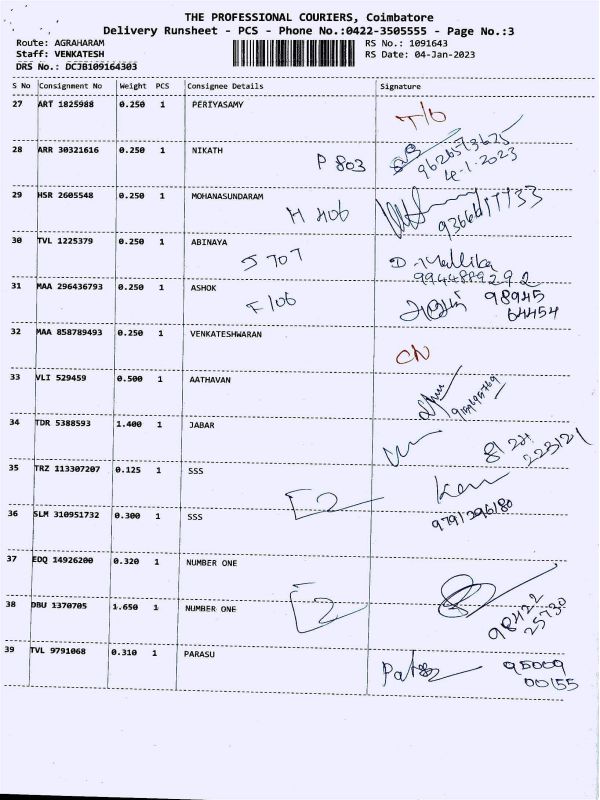 THE PROFESSIONAL COURIERS, Coimbatore
Delivery Runsheet - PCS - Phone No.:0422-3505555 - Page No.:3
Route: AGRAHARAM RS No.: 1091643
Staff: VENKATESH RS Date: 04-Jan-2023
DRS No.: DCJB109164303
S No Consignment No Weight PCS Consignee Details Signature
27 ART 1825988 0.250 1 PERIYASAMY T/O
28 ARR 30321616 0.250 1 NIKATH P 803 9626573625
4-1-2023
29 HSR 2605548 0.250 1 MOHANASUNDARAM M 406
30 TVL 1225379 0.250 1 ABINAYA J 707 D. Mallika
9944889292
31 MAA 296436793 0.250 1 ASHOK F106 98945
64454
32 MAA 858789493 0.250 1 VENKATESHWARAN CN
33 VLI 529459 0.500 1 AATHAVAN
34 TDR 5388593 1.400 1 JABAR
35 TRZ 113307207 0.125 1 SSS
36 SLM 310951732 0.300 1 SSS [2 9791396180
37 EDQ 14926200 0.320 1 NUMBER ONE
38 DBU 1370705 1.650 1 NUMBER ONE [2 98422
25730
39 TVL 9791068 0.310 1 PARASU 95009
00155